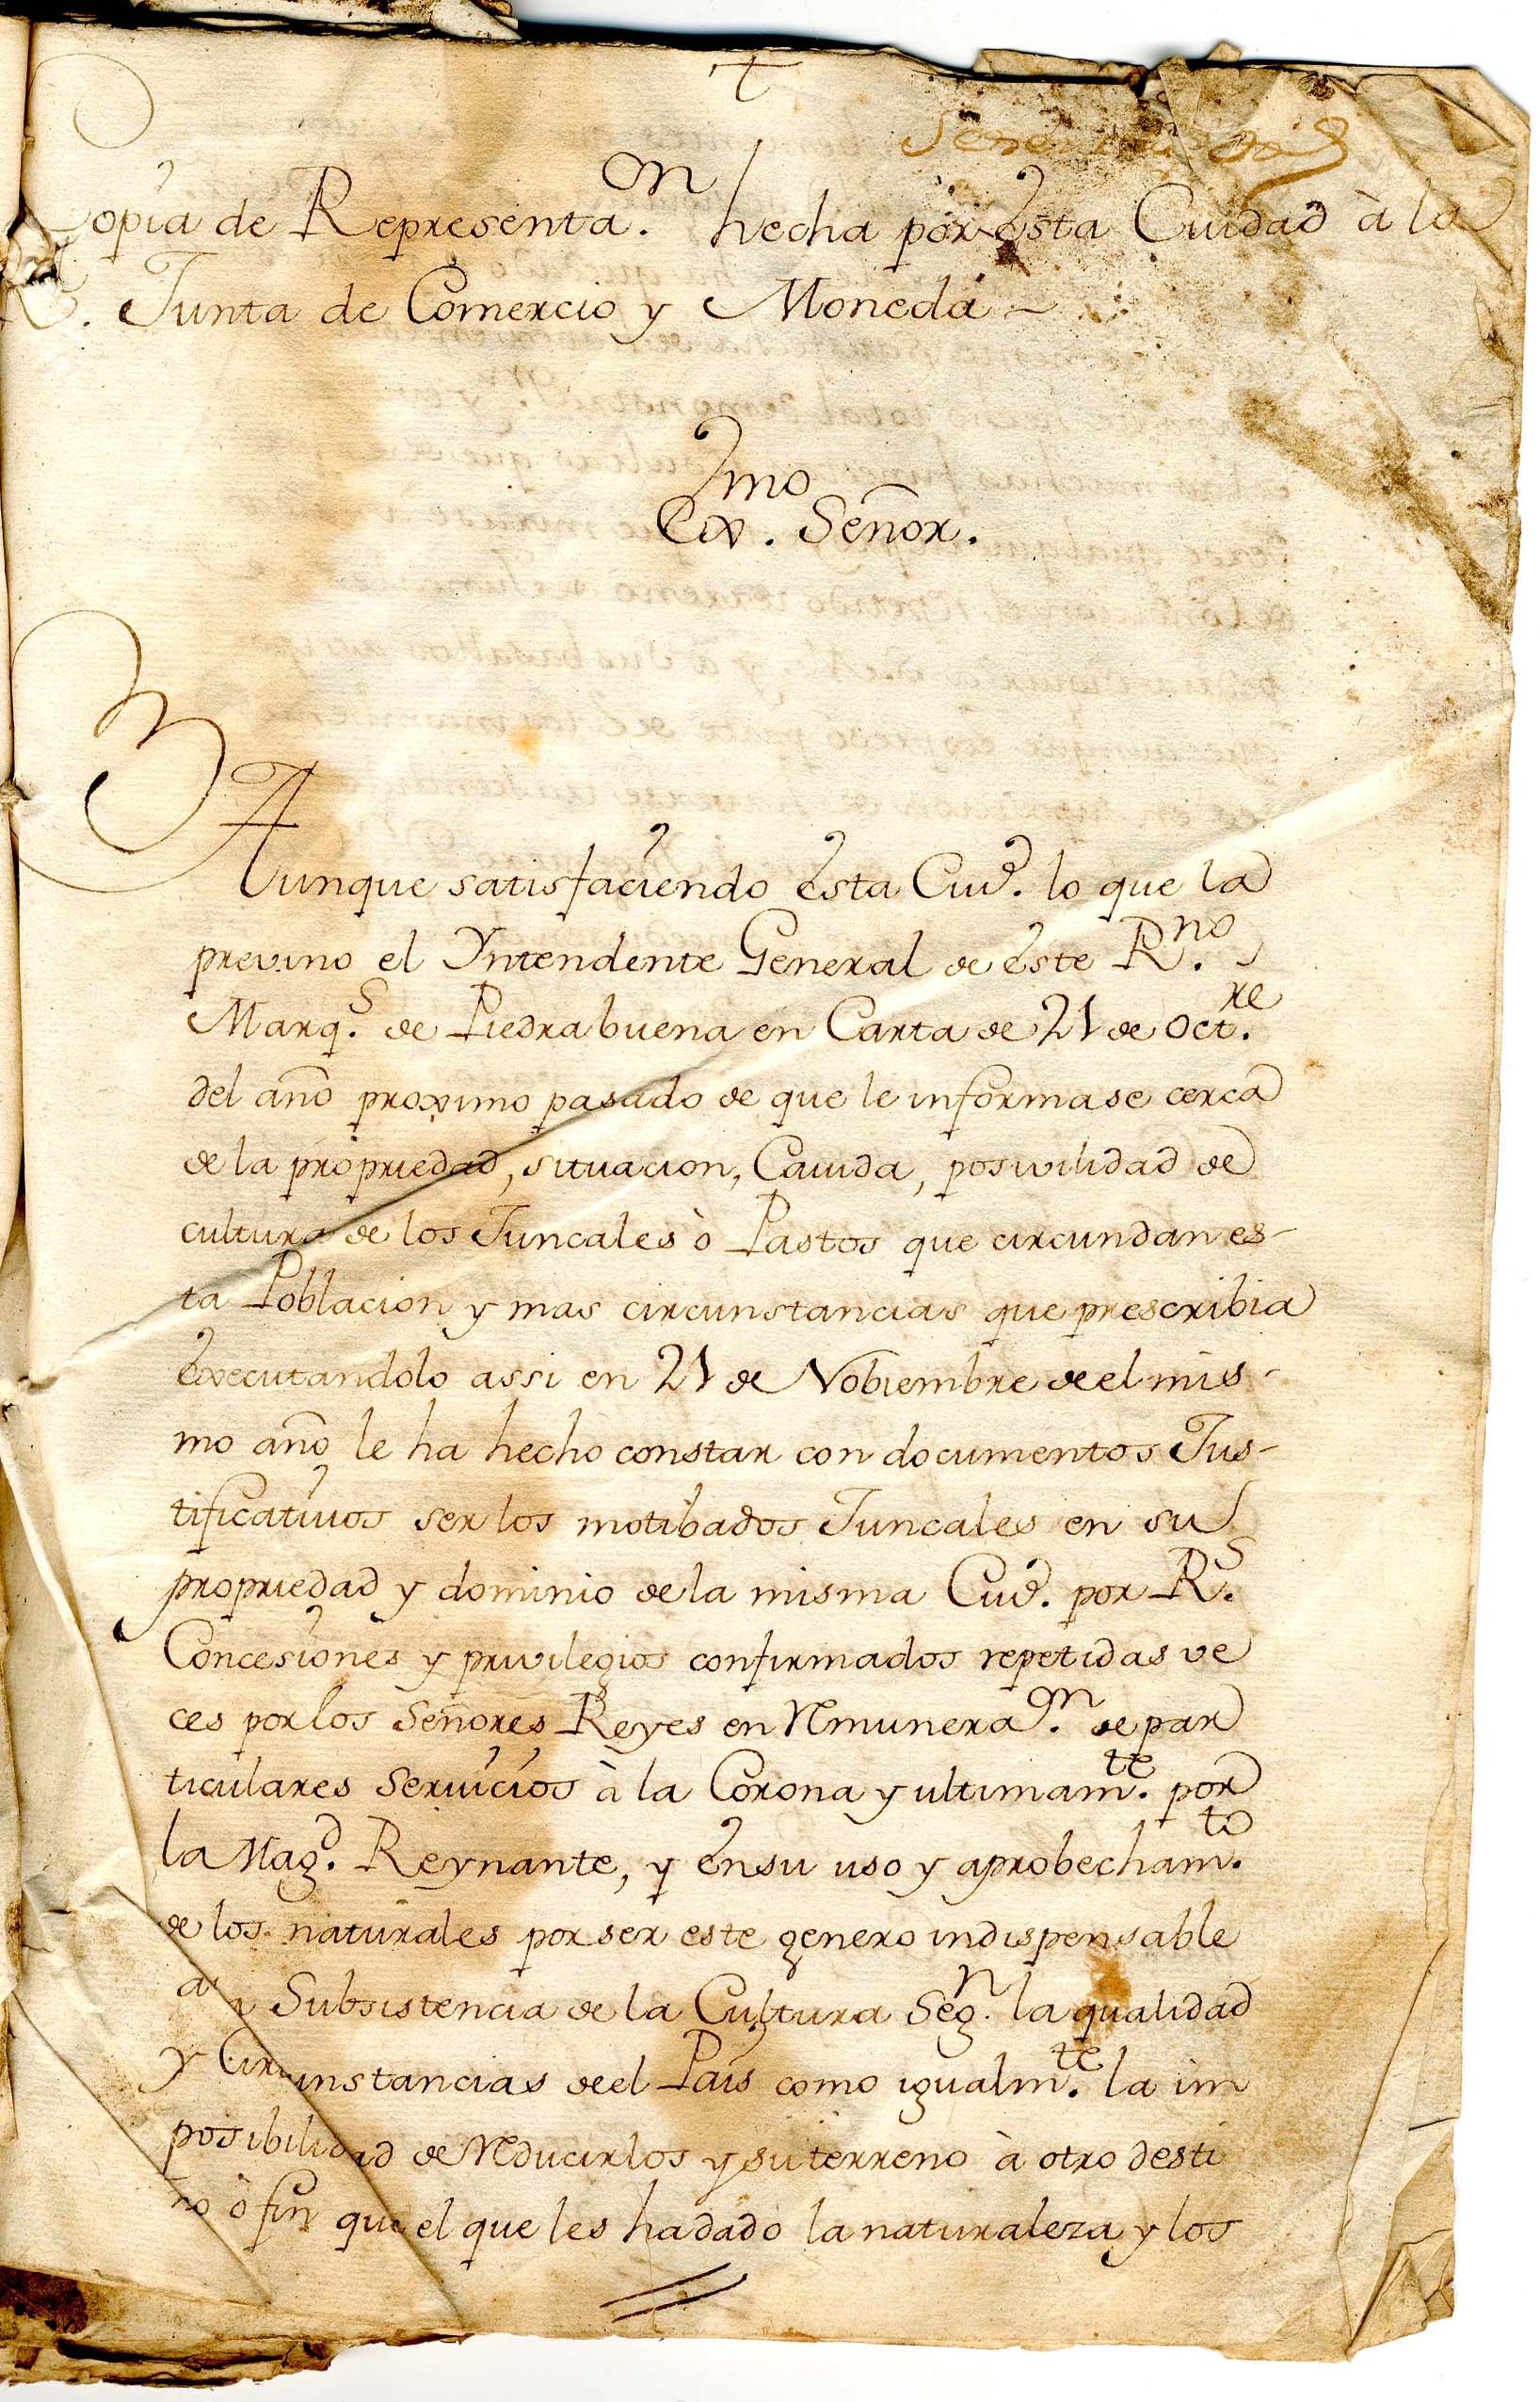 Copia de Representa.on hecha por esta Ciudad à la
R. Junta de Comercio y Moneda
Exmo. Señor.
Aunque satisfaciendo esta Ciud. lo que la
previno el Yntendente General de este R.no
Marq.s de Piedrabuena en Carta de 21 de Oct.re
del año proximo pasado de que le informase cerca
de la propriedad, situacion, Cavida, posivilidad de
cultura de los Juncales ò Pastos que circundan es-
ta Poblacion y mas circunstancias que prescribia
executandolo assi en 21 de Nobiembre de el mis-
mo año le ha hecho constar con documentos Jus-
tificativos ser los motibados Juncales en su
propriedad y dominio de la misma Ciud. por R.s
Concesiones y privilegios confirmados repetidas ve
ces por los Señores Reyes en Remunera.on de par
ticulares Servicios à la Corona y ultimam.te por
la Mag.d Reynante, y en su uso y aprobecham.to
de los naturales por ser este genero indispensable
a Subsistencia de la Cultura Seg.n la qualidad
y Circunstancias de el Pais como igualm.te la im
posibilidad de Reducirlos y su terreno à otro desti
no ò fin que el que les ha dado la naturaleza y los